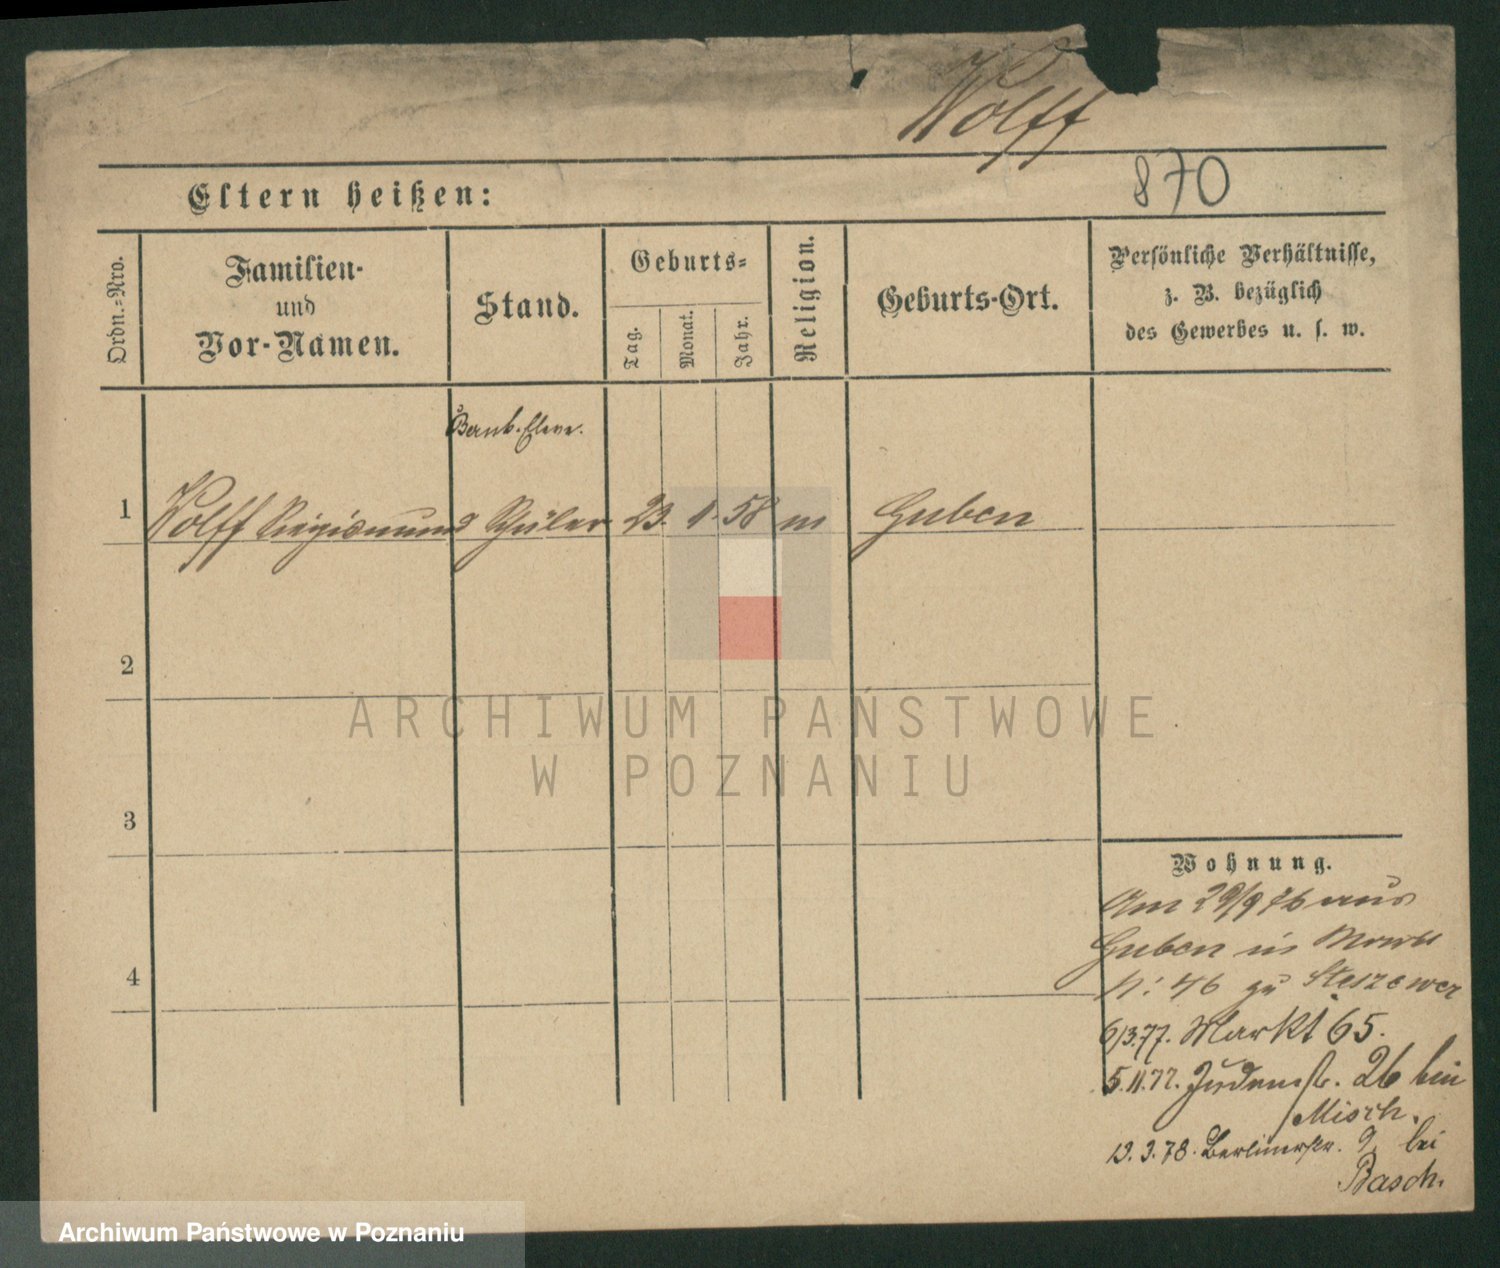 Wolff
870
Eltern heißen:
Ordn.-Nro.
Familien-
und
Vor-Namen.
Stand.
Geburts-
Tag.
Monat.
Jahr.
Religion.
Geburts-Ort.
Persönliche Verhältnisse,
z. B. bezüglich
des Gewerbes u. s. w.
Bank-Eleve.
1
Wolff Siegismund Schüler 23. 1. 58 m Guben
2
3
4
Wohnung.
Am 29/9 76 aus
Guben in
N: 46 zu
6/3.77. Markt 65.
5.11.77. Judenstr. 26 bei
Misch.
13.3.78. Berlinerstr. 9 bei
Basch.
ARCHIWUM PAŃSTWOWE
W POZNANIU
Archiwum Państwowe w Poznaniu